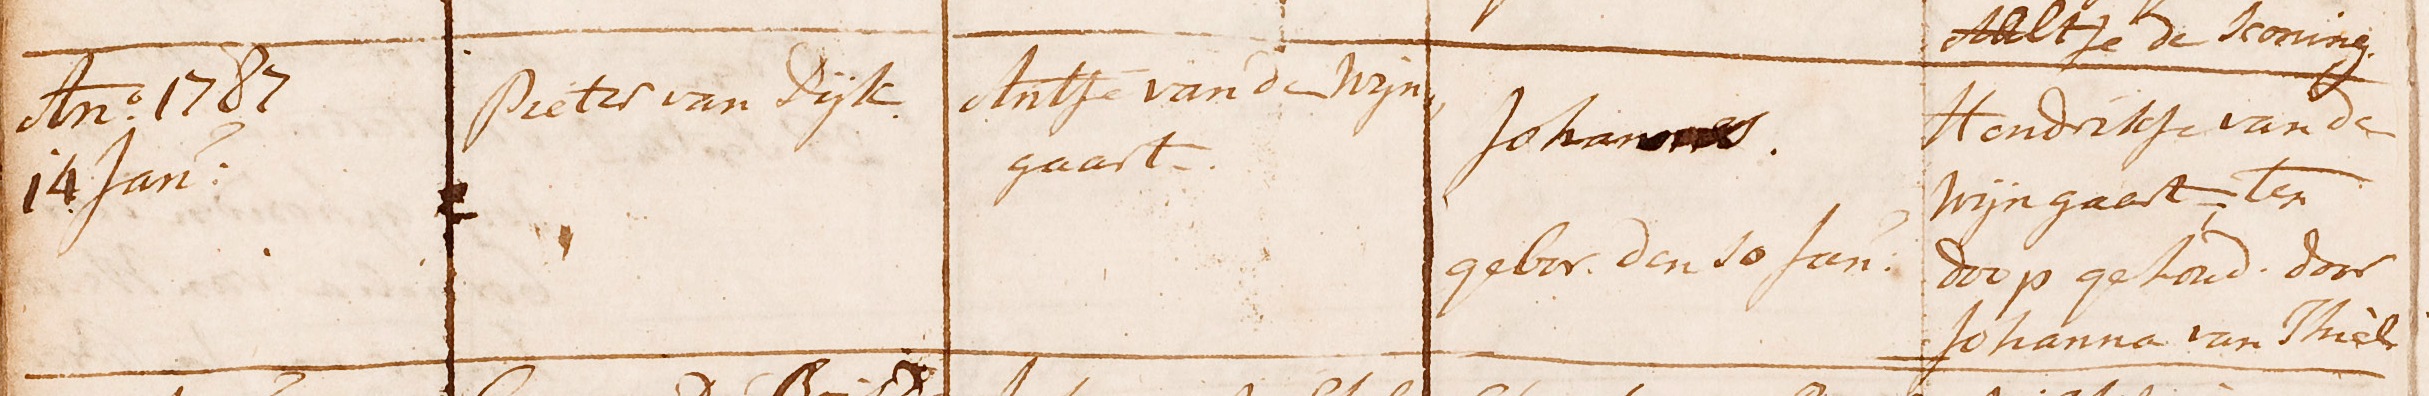 Aaltje de Koning.
Ano. 1787
14 Jan:
Pieter van Dijk.
Antje van de Wijn,
gaart.
Johannes.
gebor. den 10 Jan:
Hendrikje van de
Wijngaart, ten
doop gehoud. door
Johanna van Thiel